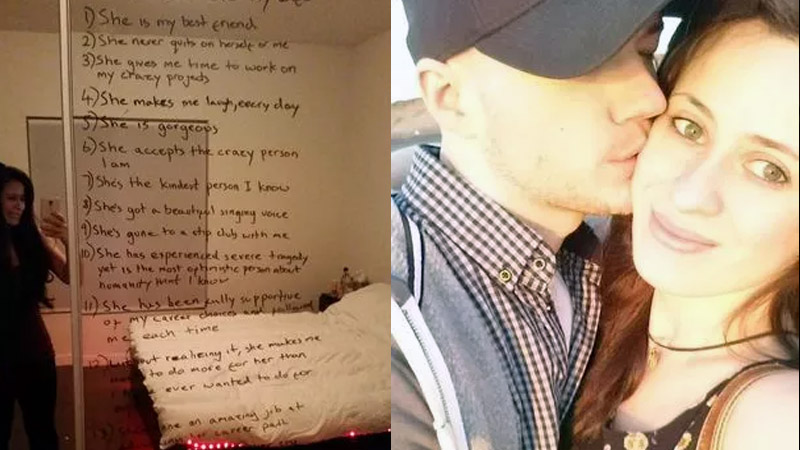 1) She is my best friend
2) She never quits on herself or me
3) She gives me time to work on
my crazy projects
4) She makes me laugh, every day
5) She is gorgeous
6) She accepts the crazy person
I am
7) She's the kindest person I know
8) She's got a beautiful singing voice
9) She's gone to a strip club with me
10) She has experienced severe tragedy
yet is the most optimistic person about
humanity that I know
11) She has been fully supportive
of my career choices and followed
me each time
12) Without realizing it, she makes me
to do more for her than
ever wanted to do for
13) an amazing job at
her career path